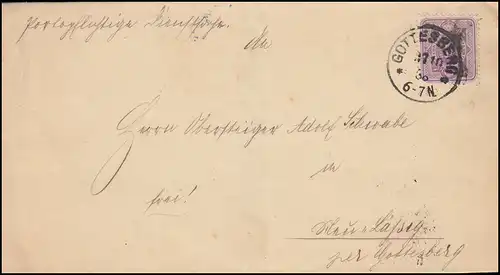 Portopflichtige Dienstsache.
An
GOTTESBERG
* 27 10 *
6-7N.
Herrn Obersteiger Adolf Schwabe
in
frei!
Neu-Lässig
per Gottesberg